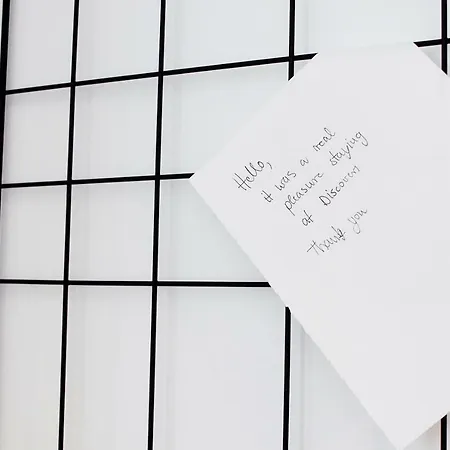 Hello,
it was a real
pleasure staying
at Discovery
Thank you